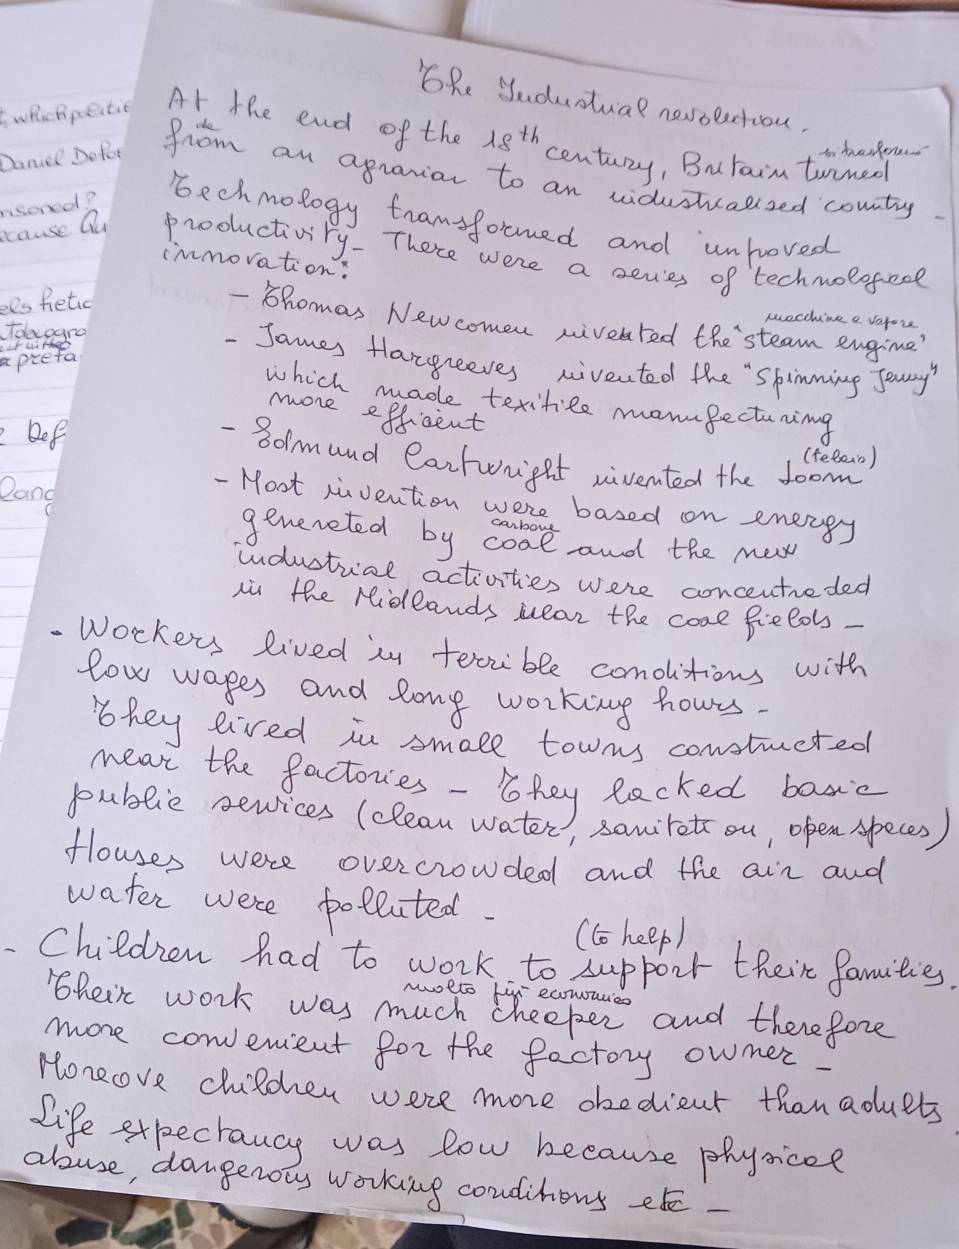 The Industrial revolution.
si trasforma
At the end of the 18th century, Britain turned
da
from an agrarian to an industrialised country -
Technology transformed and improved
productivity - There were a series of technological
innovation:
macchina a vapore
- Thomas Newcomen invented the "steam engine"
- James Hargreeves invented the "Spinning Jenny"
which made texitile manufecturing
more efficient
(telaio)
- Edmund Cartwright invented the loom
- Most invention were based on energy
carbone
generated by coal and the new
industrial activities were concentrated
in the Midlands near the coal fields -
- Workers lived in terrible conditions with
low wages and long working hours -
They lived in small towns constructed
near the factories - They lacked basic
public services (clean water, sanitation, open speces)
Houses were overcrowded and the air and
water were polluted -
(to help)
- Children had to work to support their families.
molto più economico
Their work was much cheeper and therefore
more convenient for the factory owner -
Moreove children were more obedient than adults.
Life expectancy was low because physical
abuse, dangerous working conditions etc -
Daniel Defoe
cause
Def